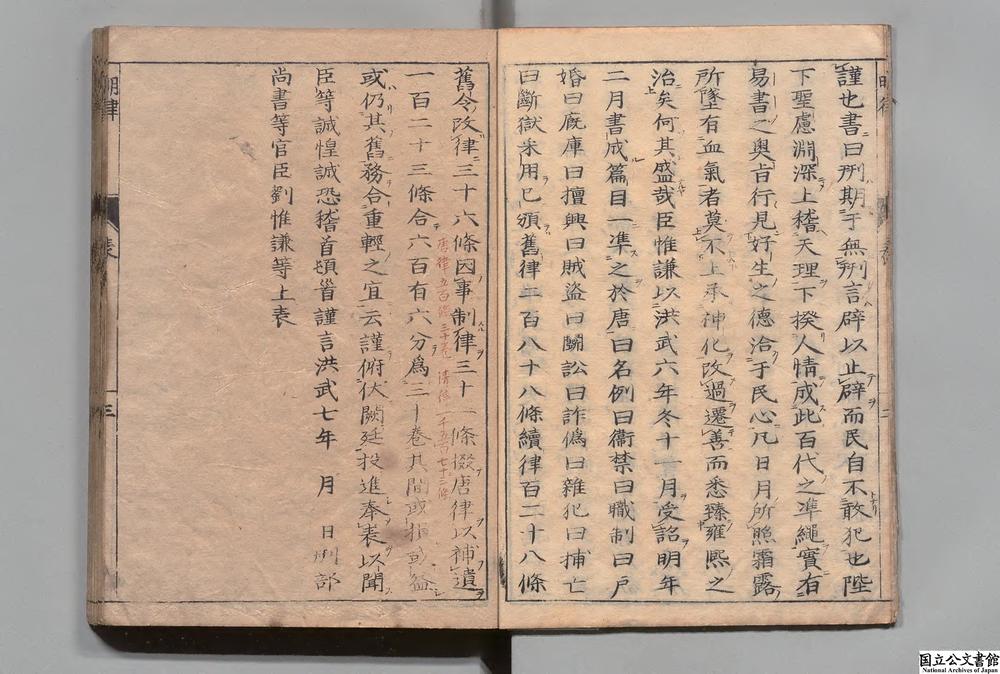 謹也書曰刑期于無刑言辟以止辟而民自不敢犯也陛
下聖慮淵深上稽天理下揆人情成此百代之準繩實有
易書之奥旨行見好生之德洽于民心凡日月所照霜露
所墜有血氣者莫不上承神化改過遷善而悉臻雍熙之
治矣何其盛哉臣惟謙以洪武六年冬十一月受詔明年
二月書成篇目一準之於唐曰名例曰衞禁曰職制曰戸
婚曰厩庫曰擅興曰賊盗曰闘訟曰詐僞曰雜犯曰捕亡
曰斷獄采用已頒舊律二百八十八條續律百二十八條
舊令改律三十六條因事制律三十一條掇唐律以補遺
一百二十三條合六百有六分爲三十卷其間或損或益
或仍其舊務合重輕之宜云謹俯伏闕廷投進奉表以聞
臣等誠惶誠恐稽首頓首謹言洪武七年 月 日刑部
尚書等官臣劉惟謙等上表
明律
表
三
国立公文書館
National Archives of Japan